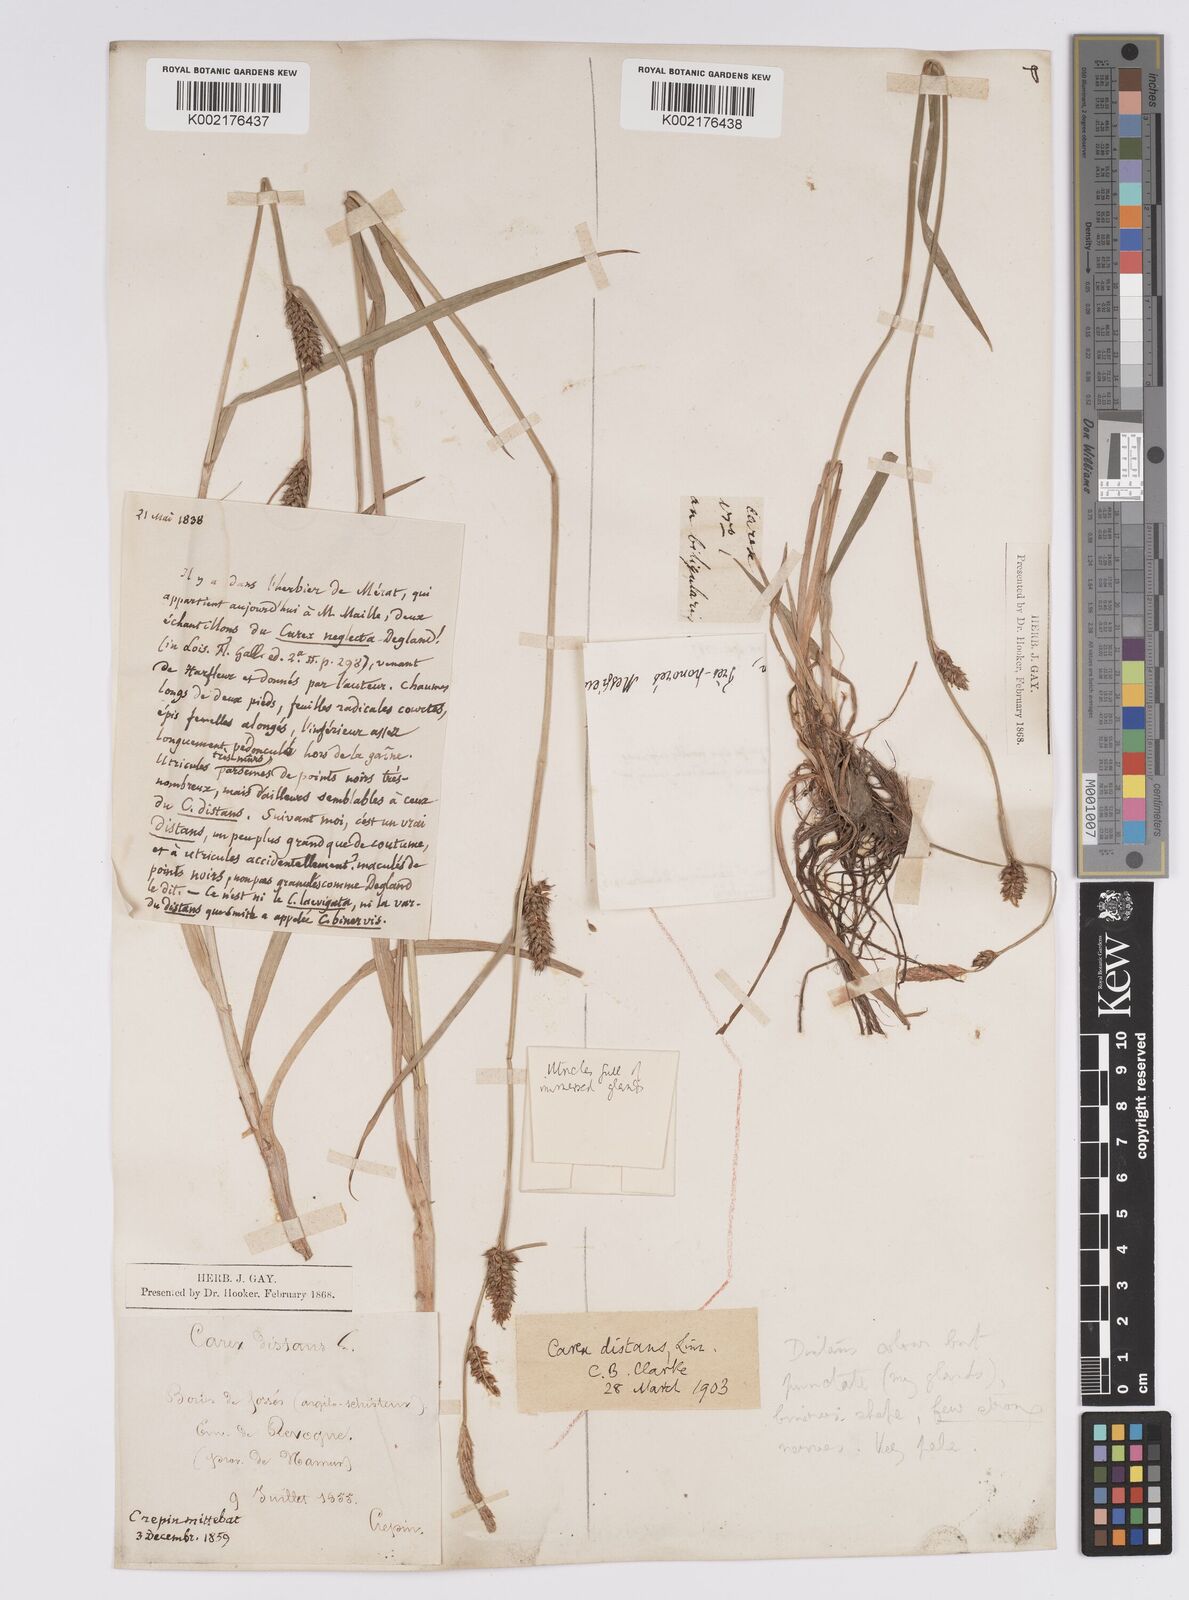 ROYAL BOTANIC GARDENS KEW
K002176437
ROYAL BOTANIC GARDENS KEW
K002176438
21 Mai 1838
Il y a dans l'herbier de Mérat, qui
appartient aujourd'hui à M. Maille, deux
échantillons du Carex neglecta Degland!
(in Lois. Fl. Gall. ed. 2.a II. p. 298), venant
de Harfleur et donnés par l'auteur. Chaumes
longs de deux pieds, feuilles radicales courtes,
épis femelles alongés, l'inférieur assez
longuement pédonculé hors de la gaîne.
Utricules très murs, parsemés de points noirs très-
nombreux, mais d'ailleurs semblables à ceux
du C. distans. Suivant moi, c'est un vrai
distans, un peu plus grand que de coutume,
et à utricules accidentellement? maculés de
points noirs, non pas granulés comme Degland
le dit. — Ce n'est ni le C. laevigata, ni la var.
du distans que Smith a appelée C. binervis.
Carex
an biligularis
Très-honoré
HERB. J. GAY.
Presented by Dr. Hooker, February 1868.
Utricles full of
immersed glands
HERB. J. GAY.
Presented by Dr. Hooker. February 1868.
Carex distans L.
Bords de fossés (argilo-schisteux).
Env. de Revogne.
(prov. de Namur)
9 Juillet 1855.
Crepin.
Crepin mittebat
3 Decembr. 1859
Carex distans, Linn.
C. B. Clarke
28 March 1903
Distans colour but
punctate (my glands),
shape, few strong
nerves. Very pale.
M001007
inches
cm
Density
Don Williams
Royal Botanic Gardens
Kew
copyright reserved
0 1 2 3 4 5 6 7 8 9 10